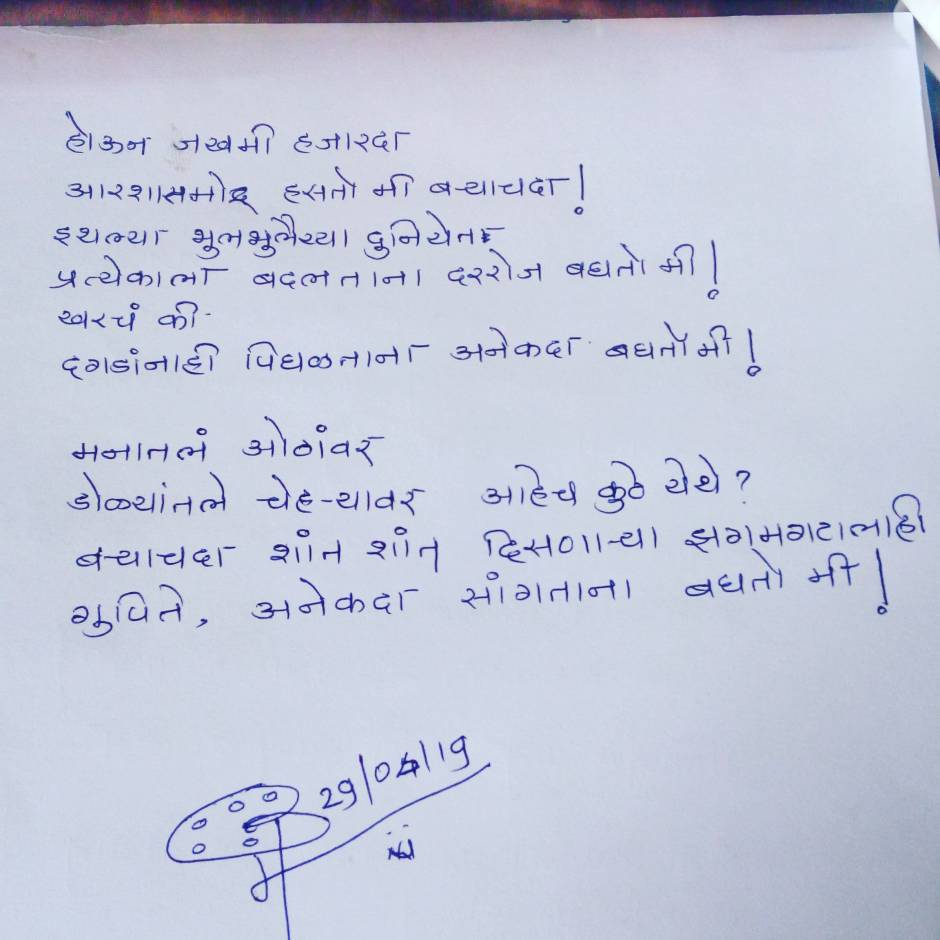 होऊन जखमी हजारदा
आरशासमोर हसतो मी बऱ्याचदा!
इथल्या भुलभुलैय्या दुनियेत
प्रत्येकाला बदलताना दररोज बघतो मी!
खरचं की
दगडांनाही विघळताना अनेकदा बघतो मी!
मनातलं ओठांवर
डोळ्यांतले चेहऱ्यावर आहेच कुठे येथे?
बऱ्याचदा शांत शांत दिसणाऱ्या झगमगटालाही
गुपिते, अनेकदा सांगताना बघतो मी!
29/04/19